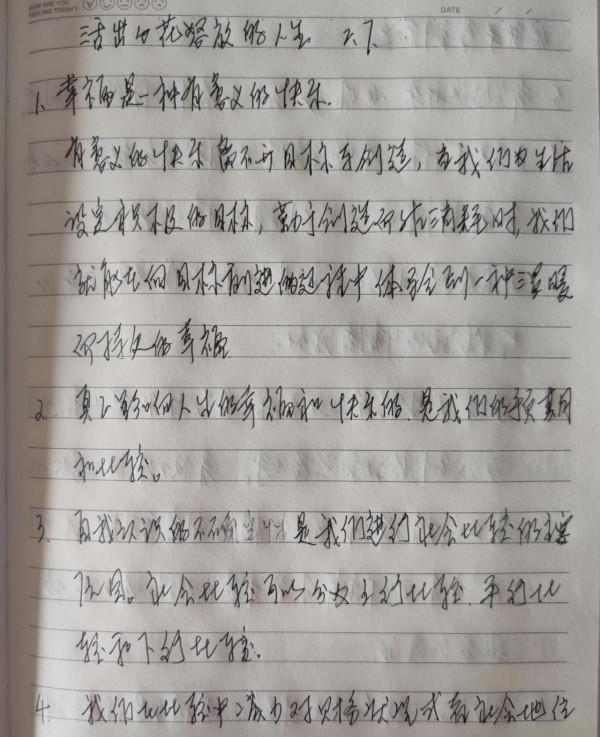 HOW ARE YOU
FEELING TODAY?
DATE / /
活出心花怒放的人生 2.7.
1. 幸福是一种有意义的快乐.
有意义的快乐离不开目标和创造,当我们为生活
设定积极的目标,勤于创造而结出硕果时,我们
就能在向目标前进的过程中体会到一种温暖
而持久的幸福
2. 真正影响人生的幸福和快乐的,是我们的预期
和比较。
3. 自我认识的不确定性是我们进行社会比较的主要
原因。社会比较可以分为上行比较,平行比
较和下行比较.
4. 我们在比较中 对财务状况或者社会地位